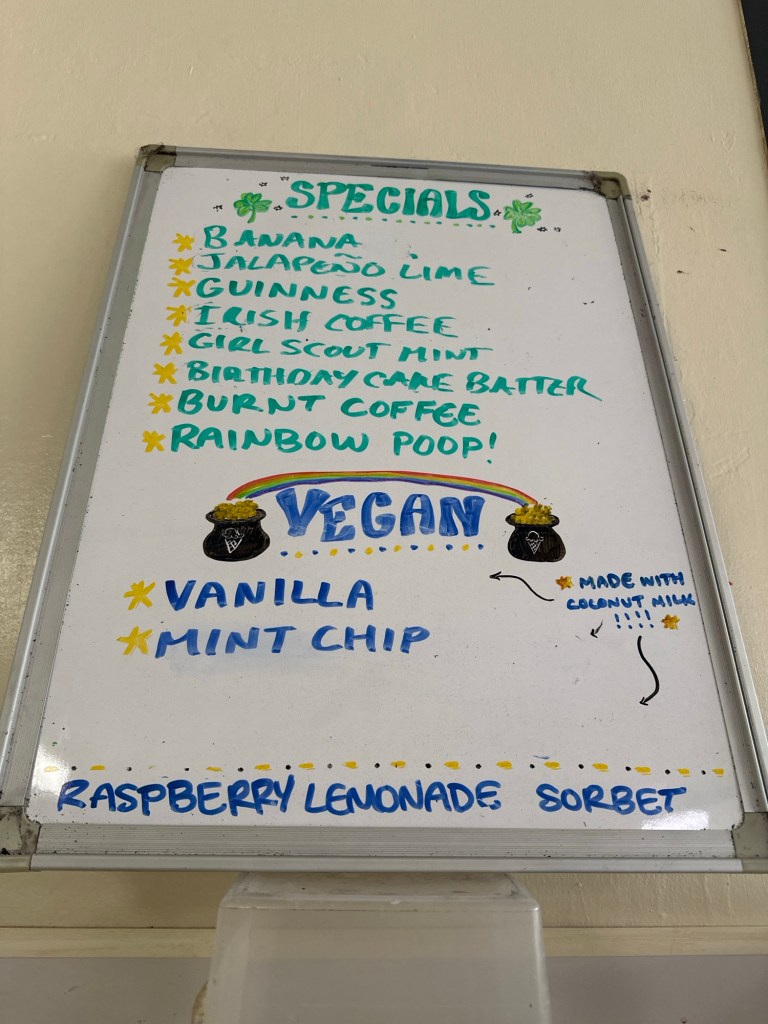 SPECIALS
BANANA
JALAPEÑO LIME
GUINNESS
IRISH COFFEE
GIRL SCOUT MINT
BIRTHDAY CAKE BATTER
BURNT COFFEE
RAINBOW POOP!
VEGAN
VANILLA
MINT CHIP
MADE WITH
COCONUT MILK
!!!!
RASPBERRY LEMONADE SORBET